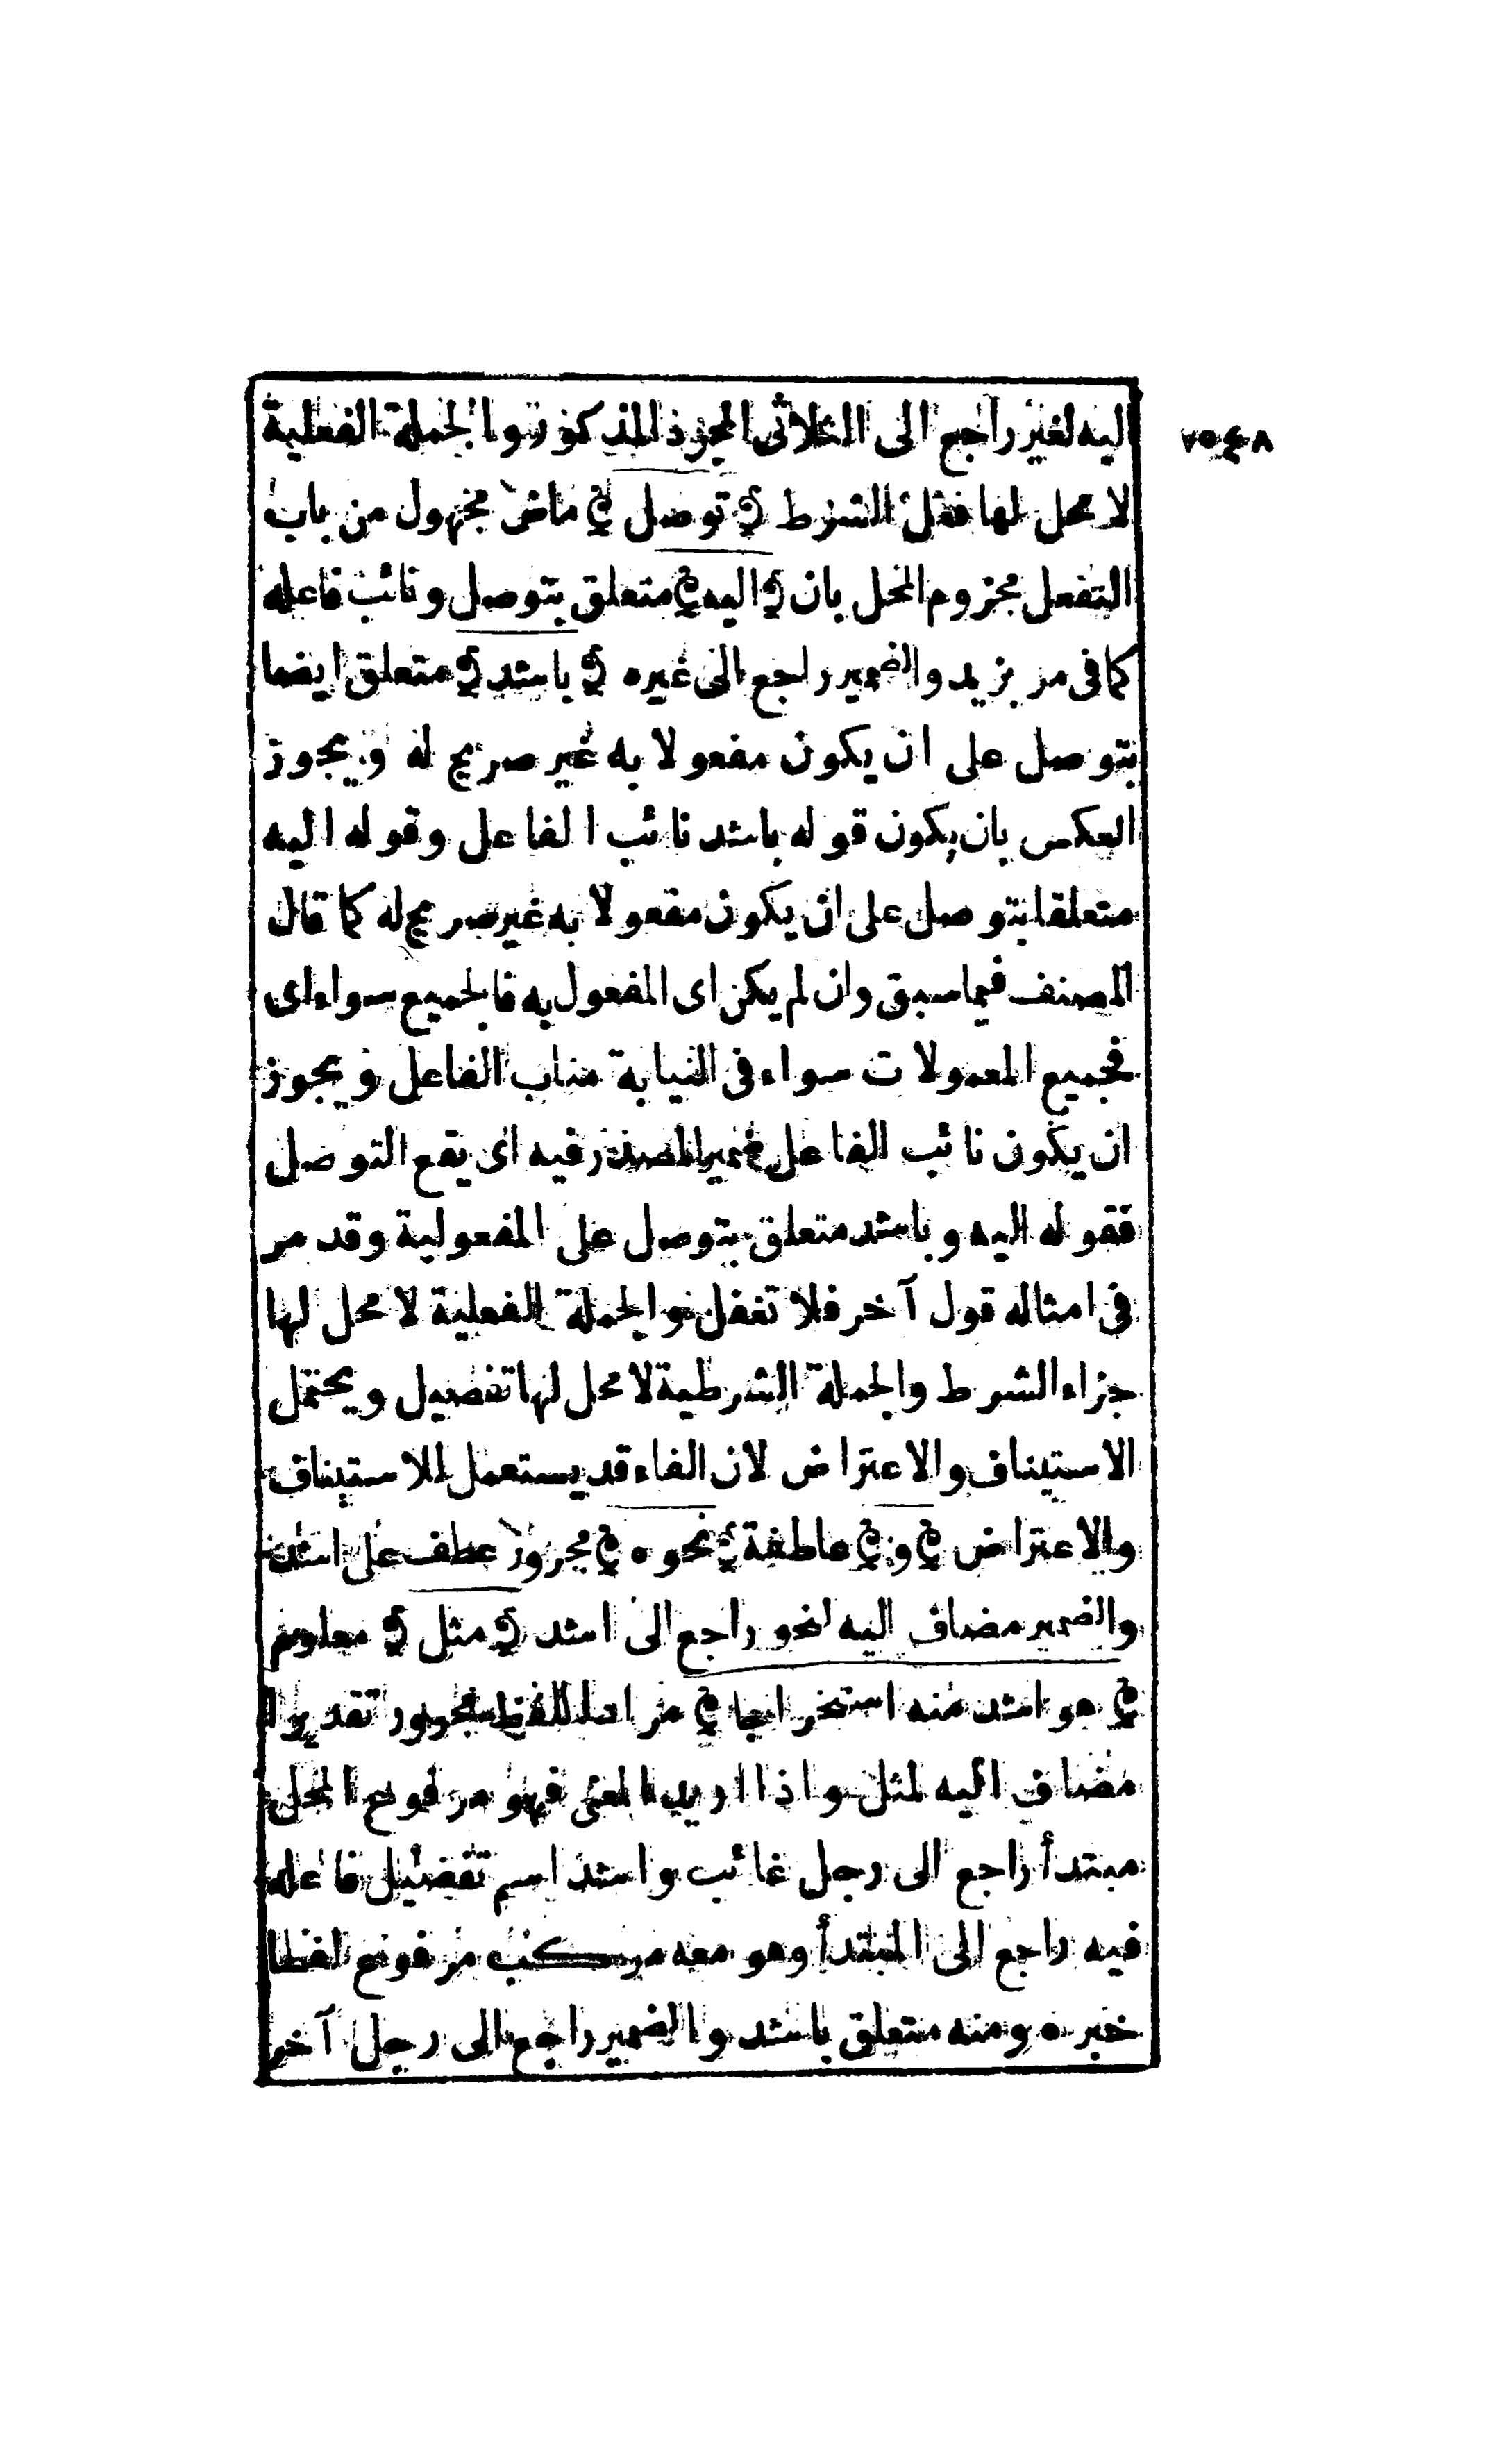 ﴿٧٥٨﴾
اليه لغير راجع الى الثلاثى المجرد المذكور والجملة الفعلية
لا محل لها فعل الشرط ﴿ توصل ﴾ ماض مجهول من باب
التفعل مجزوم المحل بان ﴿ اليه ﴾ متعلق بتوصل ونائب فاعله
كما فى مر بزيد والضمير راجع الى غيره ﴿ باشد ﴾ متعلق ايضا
بتوصل على ان يكون مفعولا به غير صريح له ويجوز
العكس بان يكون قوله باشد نائب الفاعل وقوله اليه
متعلقا بتوصل على ان يكون مفعولا به غير صريح له كما قال
المصنف فيما سبق وان لم يكن اى المفعول به فالجميع سواء اى
فجميع المعمولات سواء فى النيابة مناب الفاعل ويجوز
ان يكون نائب الفاعل ضمير المصدر فيه اى يقع التوصل
فقوله اليه وباشد متعلق بتوصل على المفعولية وقد مر
فى امثاله قول آخر فلا تغفل والجملة الفعلية لا محل لها
جزاء الشرط والجملة الشرطية لا محل لها تفصيل ويحتمل
الاستيناف والاعتراض لان الفاء قد يستعمل للاستيناف
والاعتراض ﴿ و ﴾ عاطفة ﴿ نحوه ﴾ مجرور عطف على اشد
والضمير مضاف اليه لنحو راجع الى اشد ﴿ مثل ﴾ معلوم
﴿ هو اشد منه استخراجا ﴾ مراد اللفظ مجرور تقديرا
مضاف اليه لمثل واذا اريد المعنى فهو مرفوع المحل
مبتدأ راجع الى رجل غائب واشد اسم تفضيل فاعله
فيه راجع الى المبتدأ وهو معه مركب مرفوع لفظا
خبره ومنه متعلق باشد والضمير راجع الى رجل آخر